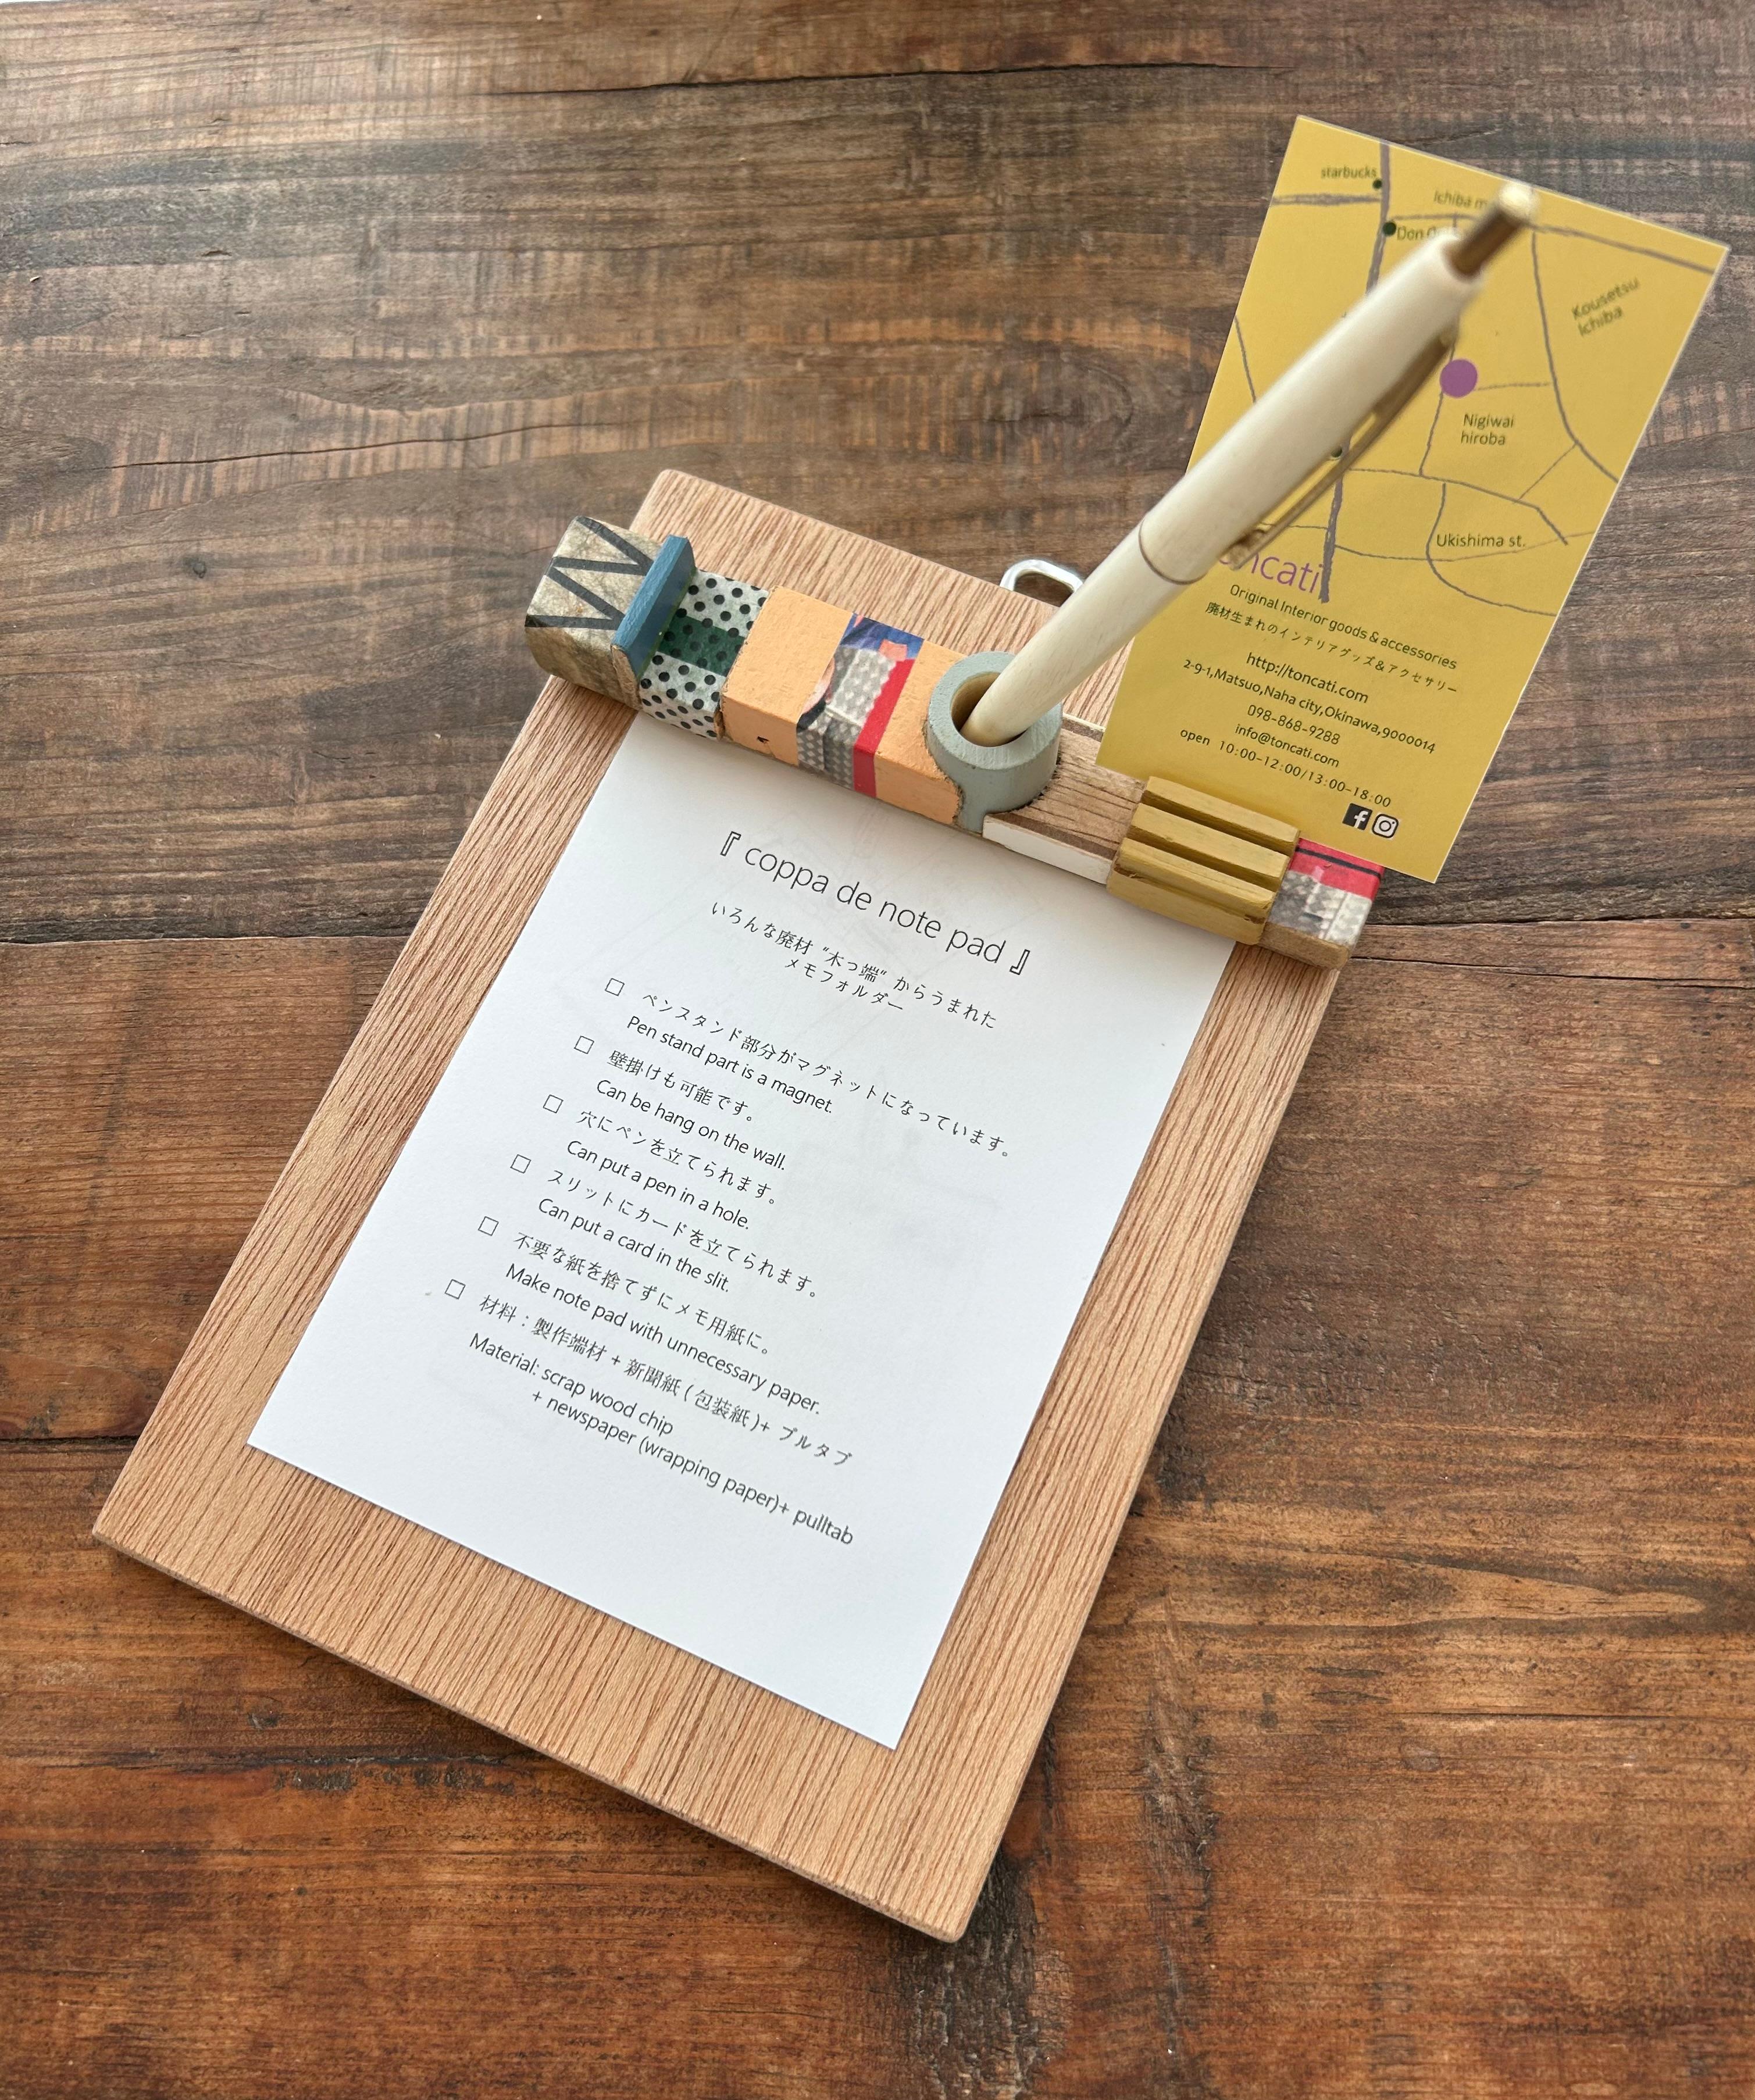 starbucks
Ichiba
Don
Kousetsu
Ichiba
Nigiwai
hiroba
Ukishima st.
Original Interior goods & accessories
廃材生まれのインテリアグッズ&アクセサリー
http://toncati.com
2-9-1,Matsuo,Naha city,Okinawa,9000014
098-868-9288
info@toncati.com
open 10:00-12:00/13:00-18:00
『 coppa de note pad 』
いろんな廃材 "木っ端" からうまれた
メモフォルダー
□ ペンスタンド部分がマグネットになっています。
Pen stand part is a magnet.
□ 壁掛けも可能です。
Can be hang on the wall.
□ 穴にペンを立てられます。
Can put a pen in a hole.
□ スリットにカードを立てられます。
Can put a card in the slit.
□ 不要な紙を捨てずにメモ用紙に。
Make note pad with unnecessary paper.
□ 材料：製作端材 + 新聞紙 ( 包装紙 )+ プルタブ
Material: scrap wood chip
+ newspaper (wrapping paper)+ pulltab